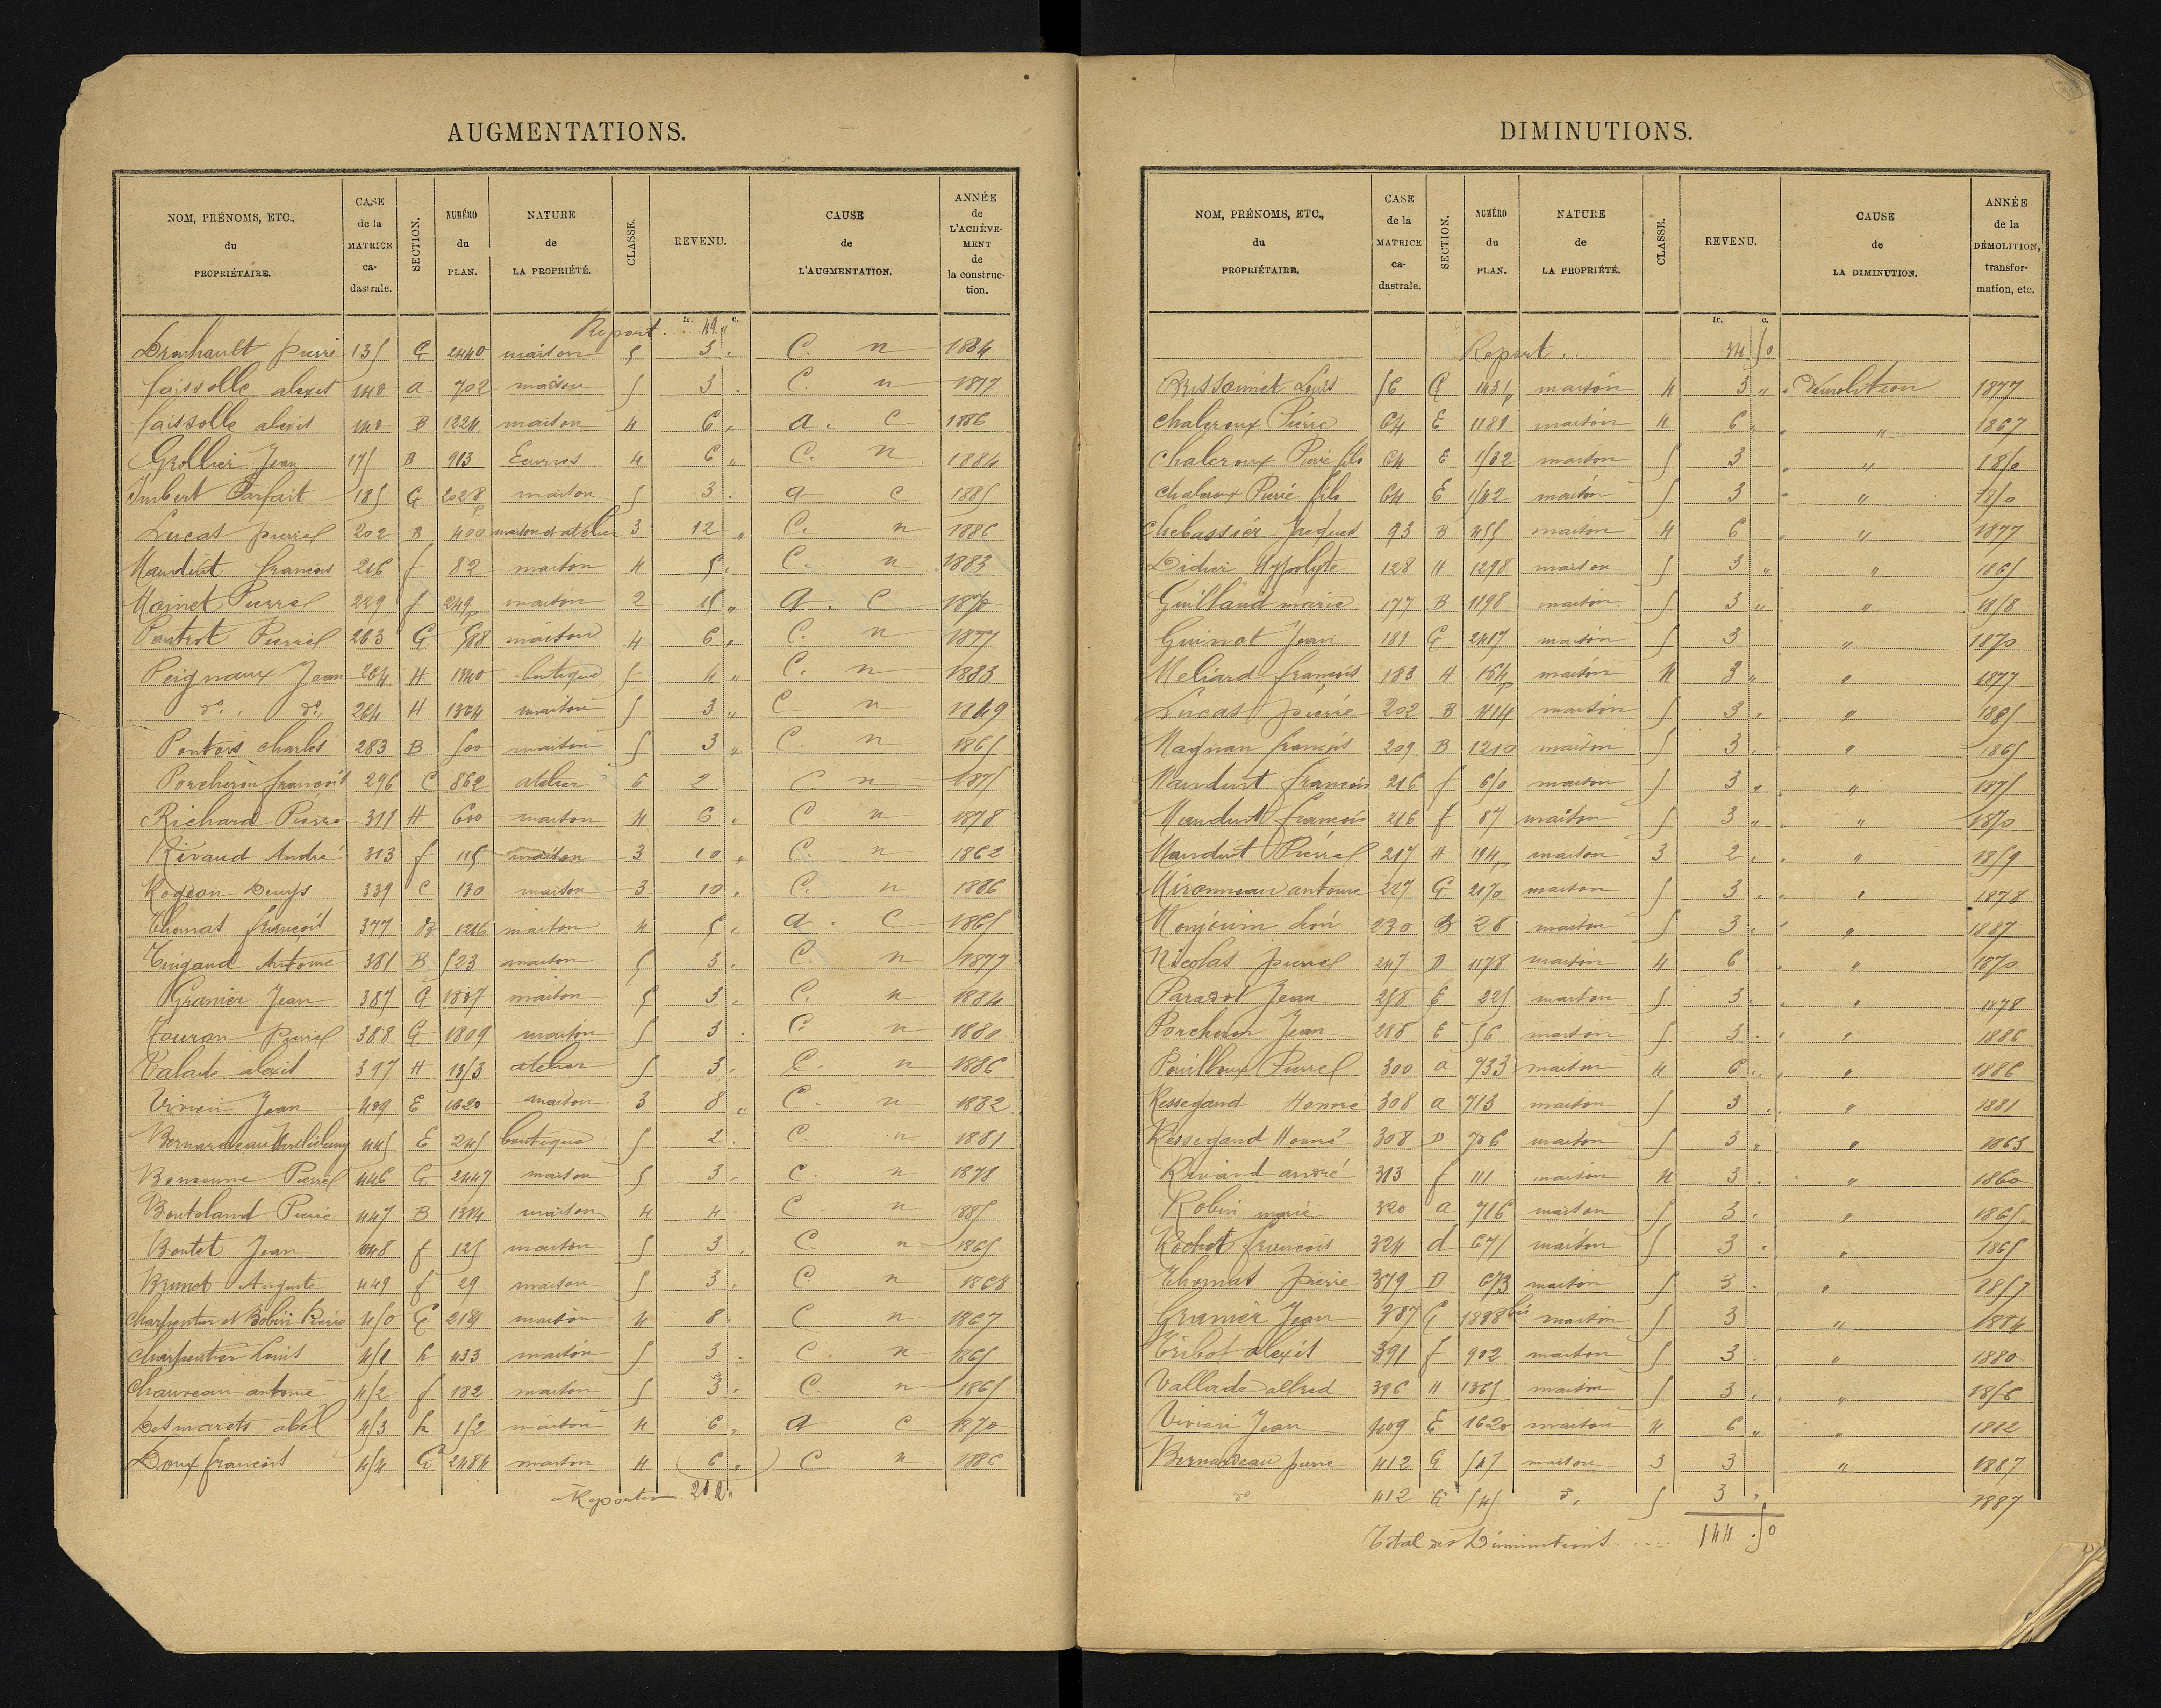 AUGMENTATIONS.
NOM, PRÉNOMS, ETC., du PROPRIÉTAIRE. | CASE de la MATRICE ca-dastrale. | SECTION. | NUMÉRO du PLAN. | NATURE de LA PROPRIÉTÉ. | CLASSE. | REVENU. | CAUSE de L'AUGMENTATION. | ANNÉE de L'ACHÈVE-MENT de la construc-tion.
fr. c.
Report . . 49 "
pierre 135 G 2440 maison 5 3 . C. n 1884
alexis 140 a 702 maison 5 3 . C. n 1877
alexis 140 B 1224 maison 4 6 " a. C 1886
Grollier Jean 175 B 913 Ecuries 4 6 " C. n 1884
Imbert Parfait 185 G 2028 p maison 5 3 . a c 1885
Lucas pierre 202 B 400 maison et atelier 3 12 " C. n 1886
Mauduit francois 216 f 82 maison 4 5 . C. n 1883
Moinet Pierre 229 f 249 p maison 2 15 " a. C
Pautrot Pierre 263 G 598 maison 4 6 " C. n 1877
Peignaux Jean 264 H 1340 boutique 5 4 " C. n 1883
do. do. 264 H 1364 maison 5 3 " C n 1849
Pontois charles 283 B 500 maison 5 3 " C. n 1865
Porcheron francois 296 C 862 atelier 6 2 C n 1875
Richard Pierre 311 H 600 maison 4 6 . C n 1878
Rivaud André 313 f 115 maison 3 10 " C. n 1862
Rogeon Denys 339 C 130 maison 3 10 . C. n 1886
Thomas francois 377 B 1216 maison 4 5 . a . C 1865
Tuigand Antoine 381 B 523 maison 5 3 . C. n 1877
Granier Jean 387 G 1887 maison 5 3 . C. n 1884
Touron pierre 388 G 1809 maison 5 3 . C n 1880
Valade alexis 397 H 1353 atelier 5 3 . C. n 1886
Vivien Jean 409 E 1620 maison 3 8 " C. n 1882
Bernardeau 445 E 245 boutique 5 2 . C. n 1881
Pierre 446 G 2447 maison 5 3 . C. n 1878
Pierre 447 B 1314 maison 4 4 C n 1885
Boutet Jean 448 f 125 maison 5 3 . C n 1865
Brunet Auguste 449 f 29 maison 5 3 . C n 1868
Charpentier et Bobin Pierre 450 G maison 4 8 . C n 1867
Charpentier Louis 451 h 433 maison 5 3 . C n 1865
Chauveau antoine 452 f 182 maison 5 3 . C. n 1865
Desmarets abel 453 h 152 maison 4 6 " a c 1870
Doux francois 454 G 2484 maison 4 6 " C. n 1886
à Reporter 202 "
DIMINUTIONS.
NOM, PRÉNOMS, ETC., du PROPRIÉTAIRE. | CASE de la MATRICE ca-dastrale. | SECTION. | NUMÉRO du PLAN. | NATURE de LA PROPRIÉTÉ. | CLASSE. | REVENU. | CAUSE de LA DIMINUTION. | ANNÉE de la DÉMOLITION, transfor-mation, etc.
fr. c.
Report . . 34 50
Louis 56 G 1431 p maison 4 3 " démolition 1877
Chaleroux Pierre 64 E 1181 maison 4 6 " " 1867
Chaleroux Pierre fils 64 E 1532 maison 5 3 " 1850
Chaleroux Pierre fils 64 E 1542 maison 5 3 " 1850
Chebassier Jacques 93 B 455 maison 4 6 " 1877
Didier Hypolyte 128 H 1298 maison 5 3 " " 1865
Guillaud marie 177 B 1198 maison 5 3 " " 1858
Guinot Jean 181 G 2417 maison 5 3 " 1870
Meliard francois 183 H 164 p maison 4 3 " " 1877
Lucas pierre 202 B 414 maison 5 3 . " 1885
Magnan francois 209 B 1210 maison 5 3 . " 1865
Mauduit francois 216 f 650 maison 5 3 " " 1875
Mauduit francois 216 f 87 maison 5 3 " " 1870
Mauduit Pierre 217 H 194 p maison 3 2 . " 1859
Mironneau antoine 227 G 2170 maison 5 3 . " 1878
230 B 28 maison 5 3 . " 1887
Nicolas pierre 247 D 1178 maison 4 6 " 1870
Paradot Jean 258 E 225 maison 5 3 . " 1878
Porcheron Jean 288 E 56 maison 5 3 . " 1886
Pouilloux Pierre 300 a 733 maison 4 6 " " 1886
Ressegand Honoré 308 a 713 maison 5 3 . " 1881
Ressegand Honoré 308 D 706 maison 5 3 " " 1863
Rivaud andré 313 f 111 maison 4 3 . " 1860
Robin marie 320 a 716 maison 5 3 . " 1865
Rochot francois 324 d 675 maison 5 3 . " 1865
Thomas pierre 379 D 673 maison 5 3 . " 1857
Granier Jean 387 G 1888 bis maison 5 3 " 1884
Tribot alexis 391 f 902 maison 5 3 . " 1880
Vallade alfred 396 H 1365 maison 5 3 . " 1856
Vivien Jean 409 E 1620 maison 4 6 " " 1882
Bernardeau pierre 412 G 547 maison 3 3 " 1887
do 412 G 545 d. 5 3 " 1887
Total des Diminutions . . . . . 144 . 50